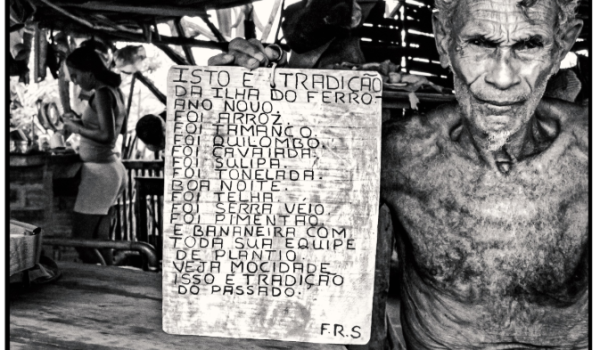 ISTO E TRADIÇÃO
DA ILHA DO FERRO-
ANO NOVO.
FOI ARROZ.
FOI TAMANCO.
FOI QUILOMBO.
FOI CAVALADA.
FOI SULIPA.
FOI TONELADA.
BOA NOITE.
FOI TELHA.
FOI SERRA VÉIO.
FOI PIMENTÃO
E BANANEIRA COM
TODA SUA EQUIPE
DE PLANTIO.
VEJA MOCIDADE
ISSO E TRADIÇÃO
DO PASSADO.
F.R.S.